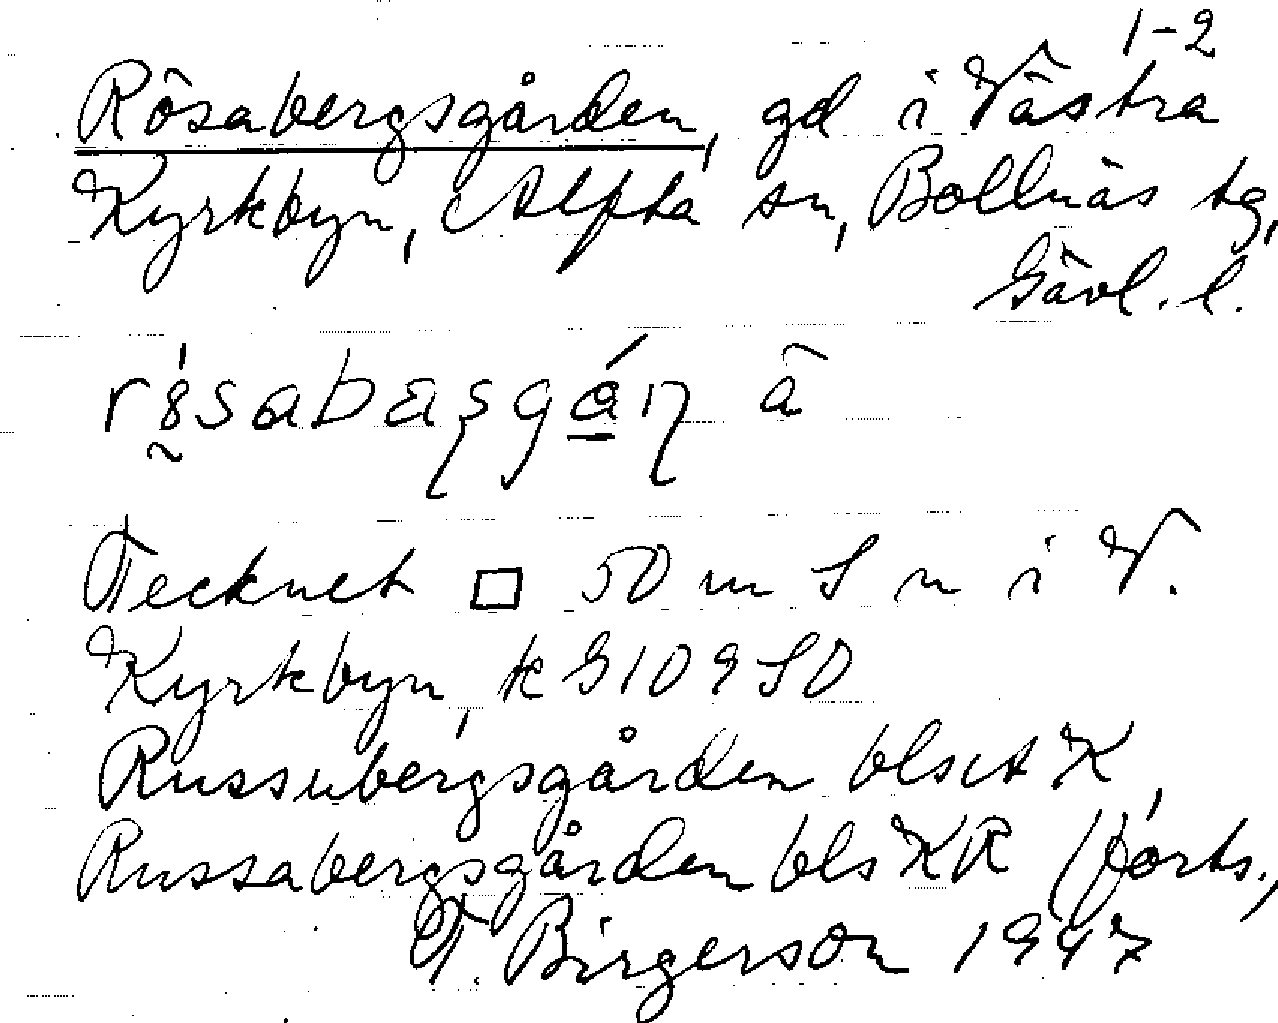 1-2
Rösabergsgården, gd i Västra
Kyrkbyn, Alfta sn, Bollnäs tg,
Gävl. l.
â
Tecknet □ 50 m S n i V.
Kyrkbyn, k G109SO
Russubergsgården blset K,
Russabergsgården bls KR (forts.,
T. Birgerson 1947